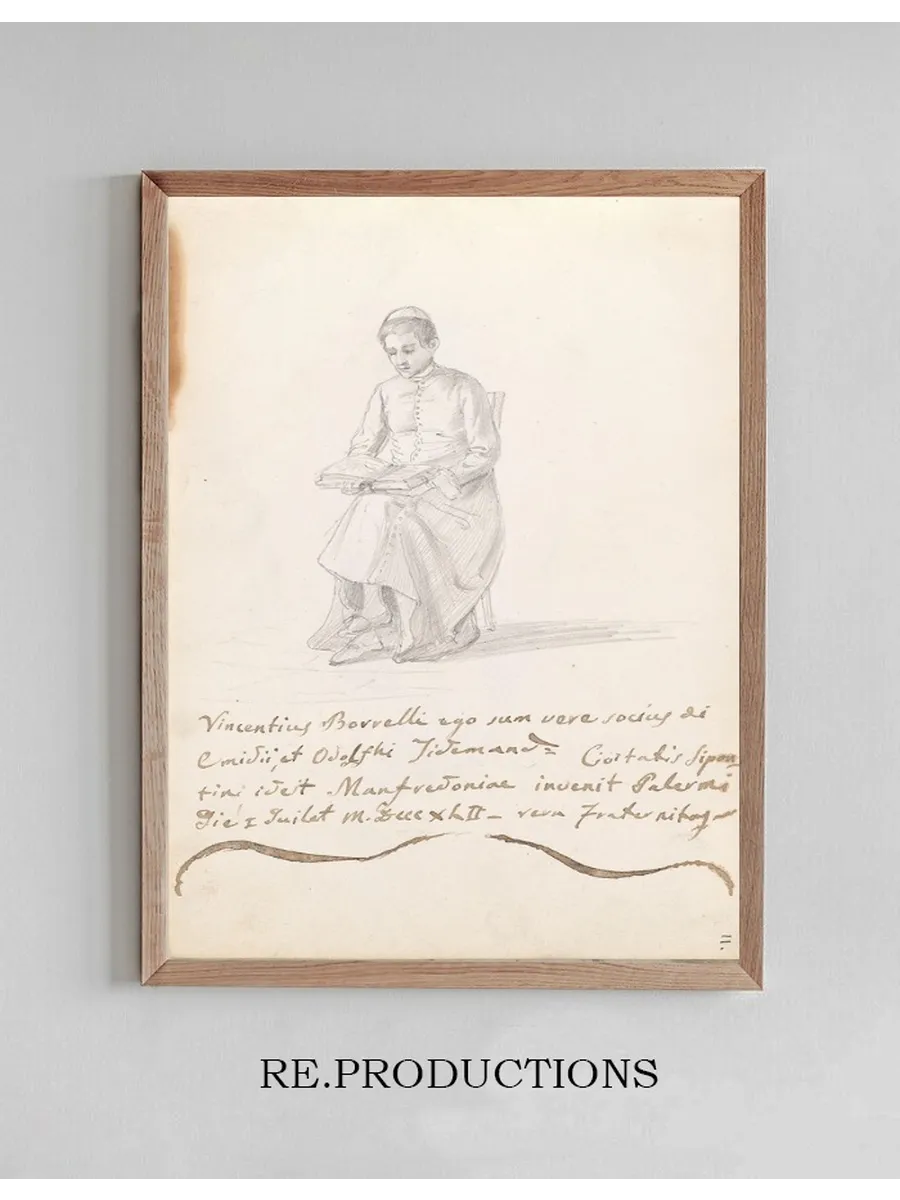 Vincentius Borrelli ego sum vere socius di
Emidii, et Odolfhi Tidemand= Civitatis Sipon=
tini id est Manfredoniae invenit Palermi
Die I Juilet M.DCCCXLII – vera Fraternitas
11.
RE.PRODUCTIONS